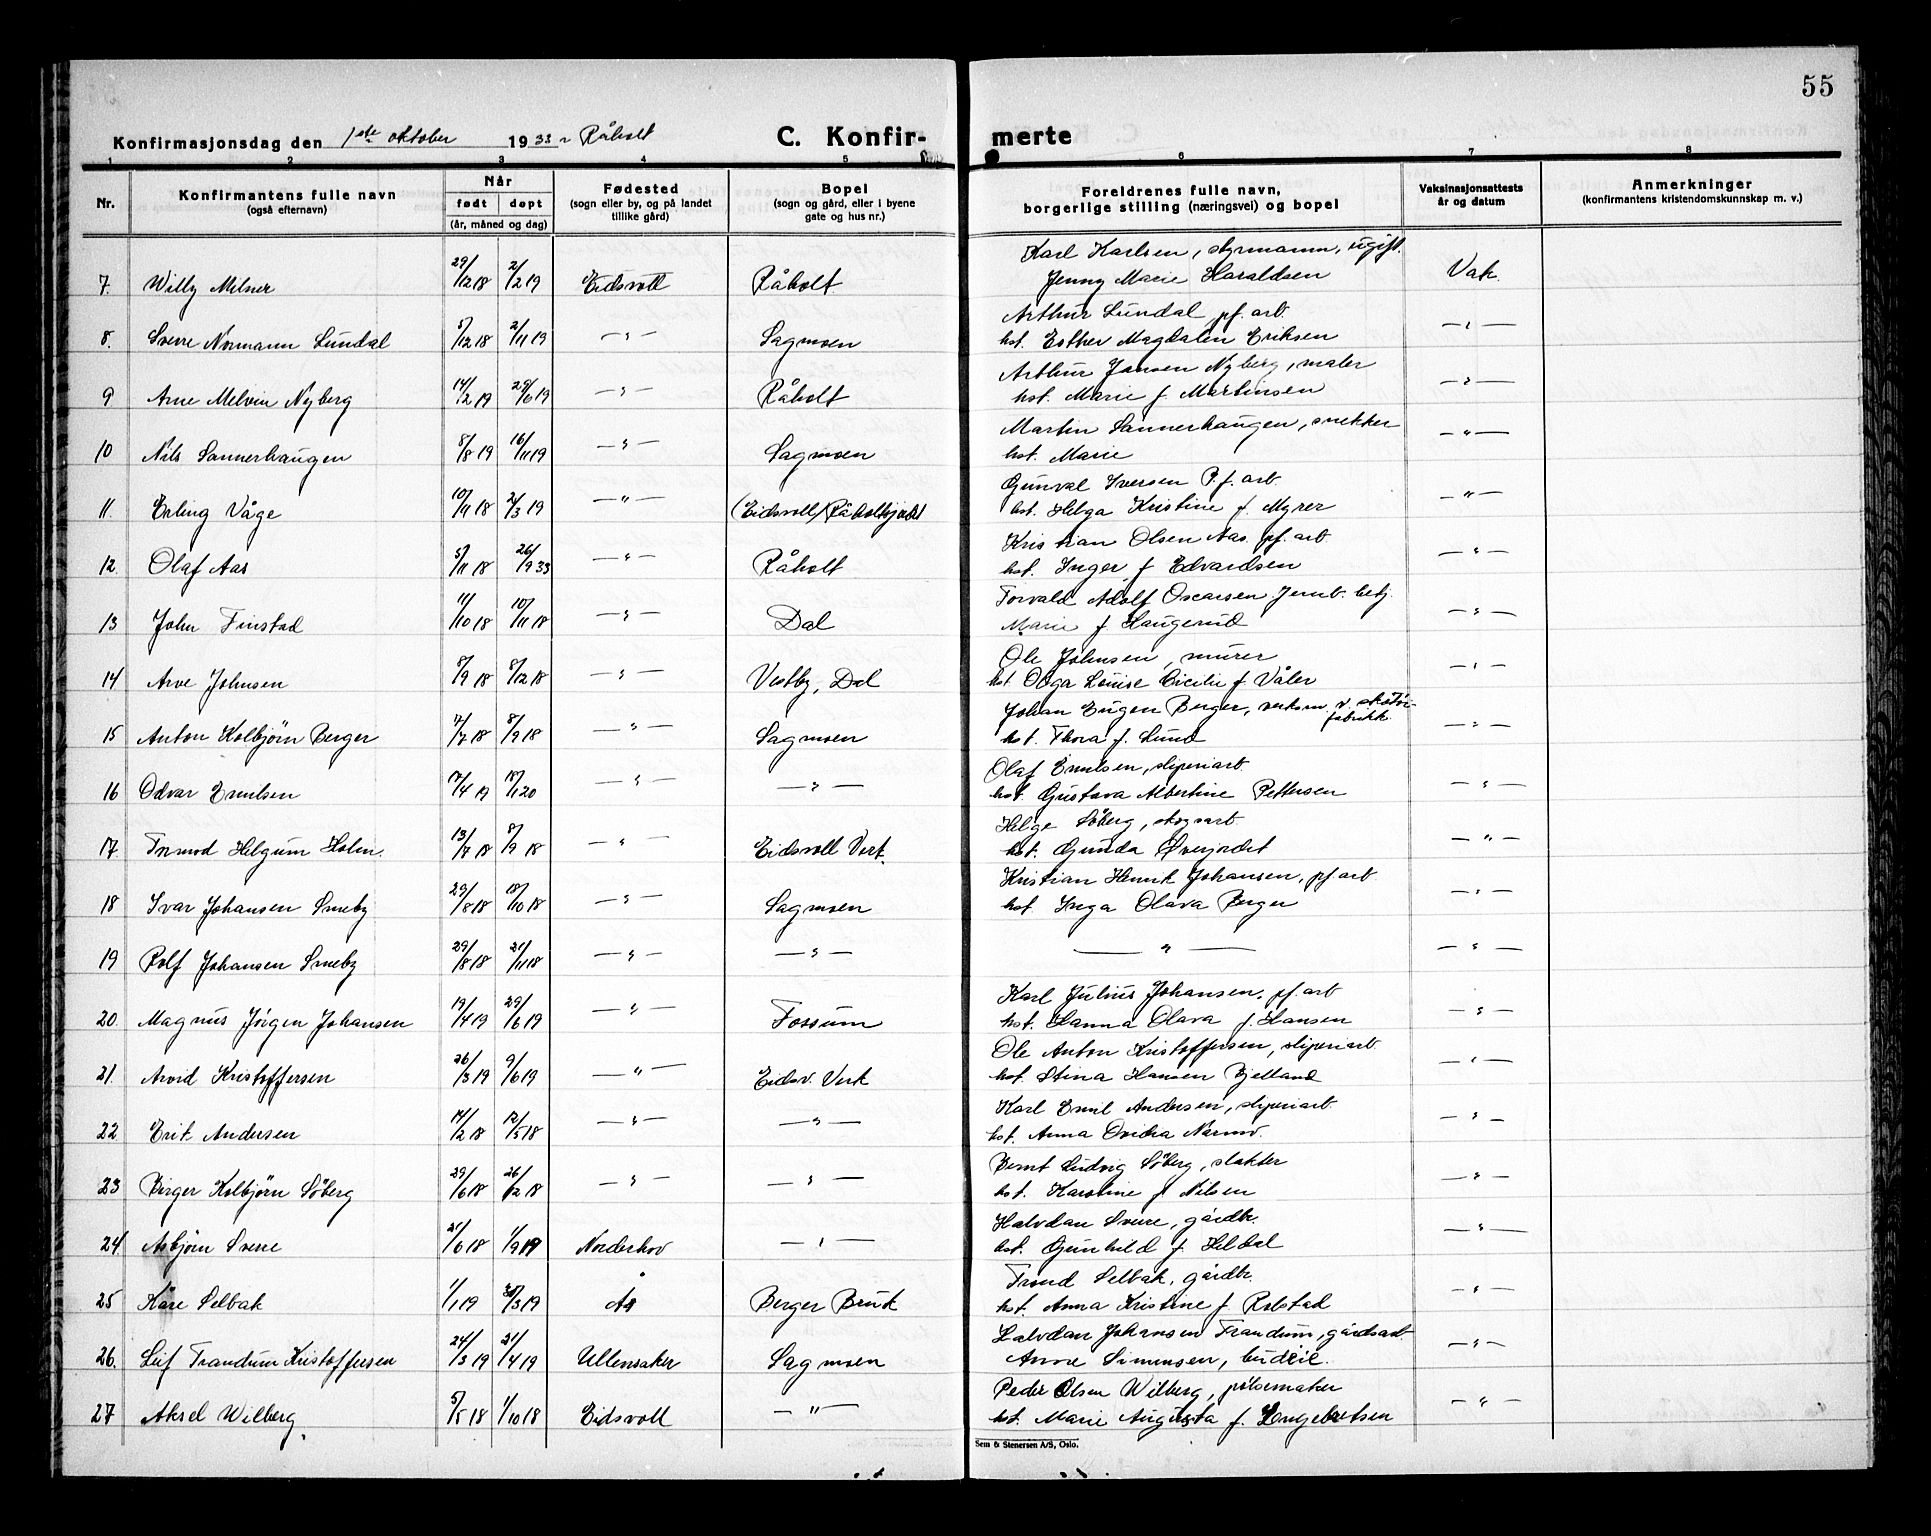 55
Konfirmasjonsdag den 1ste oktober 1933 Råholt C. Konfirmerte
1 2 3 4 5 6 7 8
Nr. Konfirmantens fulle navn (også efternavn) Når født døpt (år, måned og dag) Fødested (sogn eller by, og på landet tillike gård) Bopel (sogn og gård, eller i byene gate og hus nr.) Foreldrenes fulle navn, borgerlige stilling (næringsvei) og bopel Vaksinasjonsattests år og datum Anmerkninger (konfirmantens kristendomskunnskap m. v.)
Karl Karlsen, styrmann, ugift.
7. Willy Milner 29/12 18 2/2 19 Eidsvoll Råholt Jenny Marie Haraldsen Vak.
Arthur Lundal pf. arb.
8. Sverre Normann Lundal 5/12 18 2/11 19 — " — Sagmoen hst. Esther Magdalen Eriksen — " —
Arthur Jansen Nyberg, maler
9 Arne Melvin Nyberg 14/2 19 29/6 19 — " — Råholt hst. Marie f. Martinsen — " —
Martin Sannerhaugen, snekker
10 Nils Sannerhaugen 8/8 19 16/11 19 — " — Sagmoen hst. Marie — " —
Gunval Iversen P.f. arb.
11. Erling Våge 10/11 18 2/3 19 — " — (Eidsvoll) Råholtbjødet hst. Helga Kristine f. Myrer — " —
Kristian Olsen Aas. pf. arb.
12. Olaf Aas 5/11 18 26/9 33 — " — Råholt hst. Inger f. Edvardsen — " —
Torvald Adolf Oscarsen Jernb. betj.
13 John Finstad 11/10 18 10/11 18 — " — Dal Marie f. Haugerud — " —
Ole Johnsen, murer
14 Arve Johnsen 8/9 18 8/12 18 — " — Vestby, Dal hst. Olga Louise Cicilie f. Våler — " —
Johan Eugen Berger, verksm. v. skotöi-
fabrikk.
15 Anton Kolbjörn Berger 7/7 18 8/9 18 — " — Sagmoen hst. Thora f. Lund — " —
Olaf Emilsen, sliperiarb.
16 Odvar Emilsen 17/4 19 18/1 20 — " — — " — hst. Gustava Albertine Pettersen — " —
Helge Söberg, skogsarb.
17. Tormod Helgum Holm. 13/7 18 8/9 18 — " — Eidsvoll Verk. hst. Gunda Øverjordet — " —
Kristian Henrik Johansen, pf. arb.
18 Ivar Johansen Smeby 29/8 18 18/10 18 — " — Sagmoen hst. Inga Olava Berger — " —
19 Rolf Johansen Smeby 29/8 18 21/11 18 — " — — " — — " — — " —
Karl Julius Johansen, pf. arb
20. Magnus Jörgen Johansen 19/4 19 29/6 19 — " — Fossum hst. Hanna Olava f. Hansen — " —
Ole Anton Kristoffersen, sliperiarb.
21. Arvid Kristoffersen 26/3 19 9/6 19 — " — Eidsv. Verk hst. Stina Hansen Bjelland — " —
Karl Emil Andersen, sliperiarb.
22 Erik Andersen 14/2 18 12/5 18 — " — — " — hst. Anna — " —
Bernt Ludvig Söberg, slakter
23 Birger Kolbjörn Söberg 29/6 18 26/12 18 — " — — " — hst. Karoline f. Nilsen — " —
Halvdan Sverre, gårdbr.
24 Asbjörn Sverre 21/6 18 1/9 19 Norderhov — " — hst. Gunhild f. Hildal — " —
Trond Selbak, gårdbr.
25 Kåre Selbak 1/1 19 30/3 19 Ås Berger Bruk hst. Anna Kristine f. Rolstad — " —
Halvdan Johansen Trandum, gårdsarb.
26. Leif Trandum Kristoffersen 24/3 19 21/4 19 Ullensaker Sagmoen Anne Simensen, budeie. — " —
Peder Olsen Wilberg, pølsemaker
27 Aksel Wilberg 5/5 18 1/10 18 Eidsvoll — " — hst. Marie Augusta f. Engebretsen — " —
Sem & Stenersen A/S, Oslo.